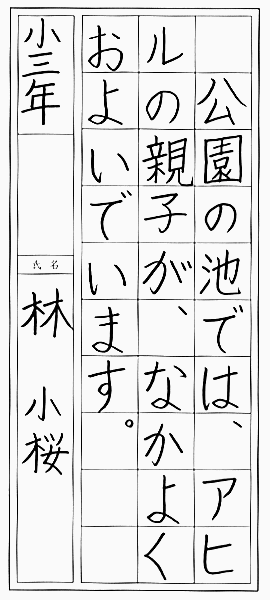 公園の池では、アヒ
ルの親子が、なかよく
およいでいます。
小三年
氏名
林 小桜